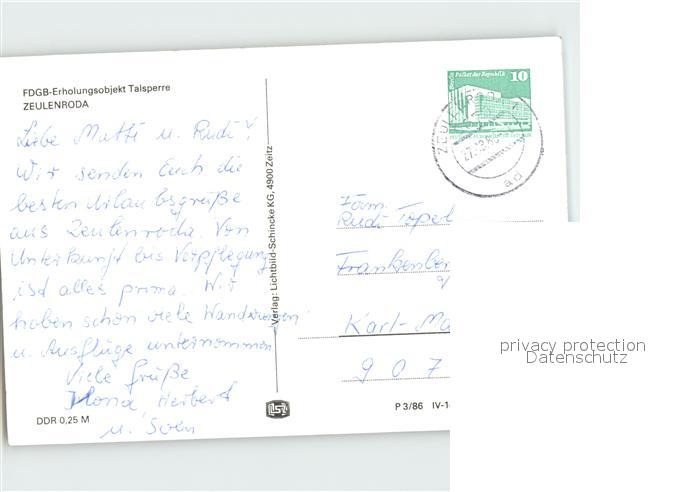 FDGB-Erholungsobjekt Talsperre
ZEULENRODA
Liebe Mutti u. Rudi!
Wir senden Euch die
besten Urlaubsgrüße
aus Zeulenroda. Von
Unterkunft bis Verpflegung
ist alles prima. Wir
haben schon viele Wanderungen
u. Ausflüge unternommen
Viele Grüße
Ilona, Herbert
u. Sven
DDR 0,25 M
Verlag: Lichtbild-Schincke KG, 4900 Zeitz
Berlin Palast der Republik
10
Fam.
Rudi
Frankenber
Karl-Ma
907
P 3/86 IV-1
privacy protection
Datenschutz